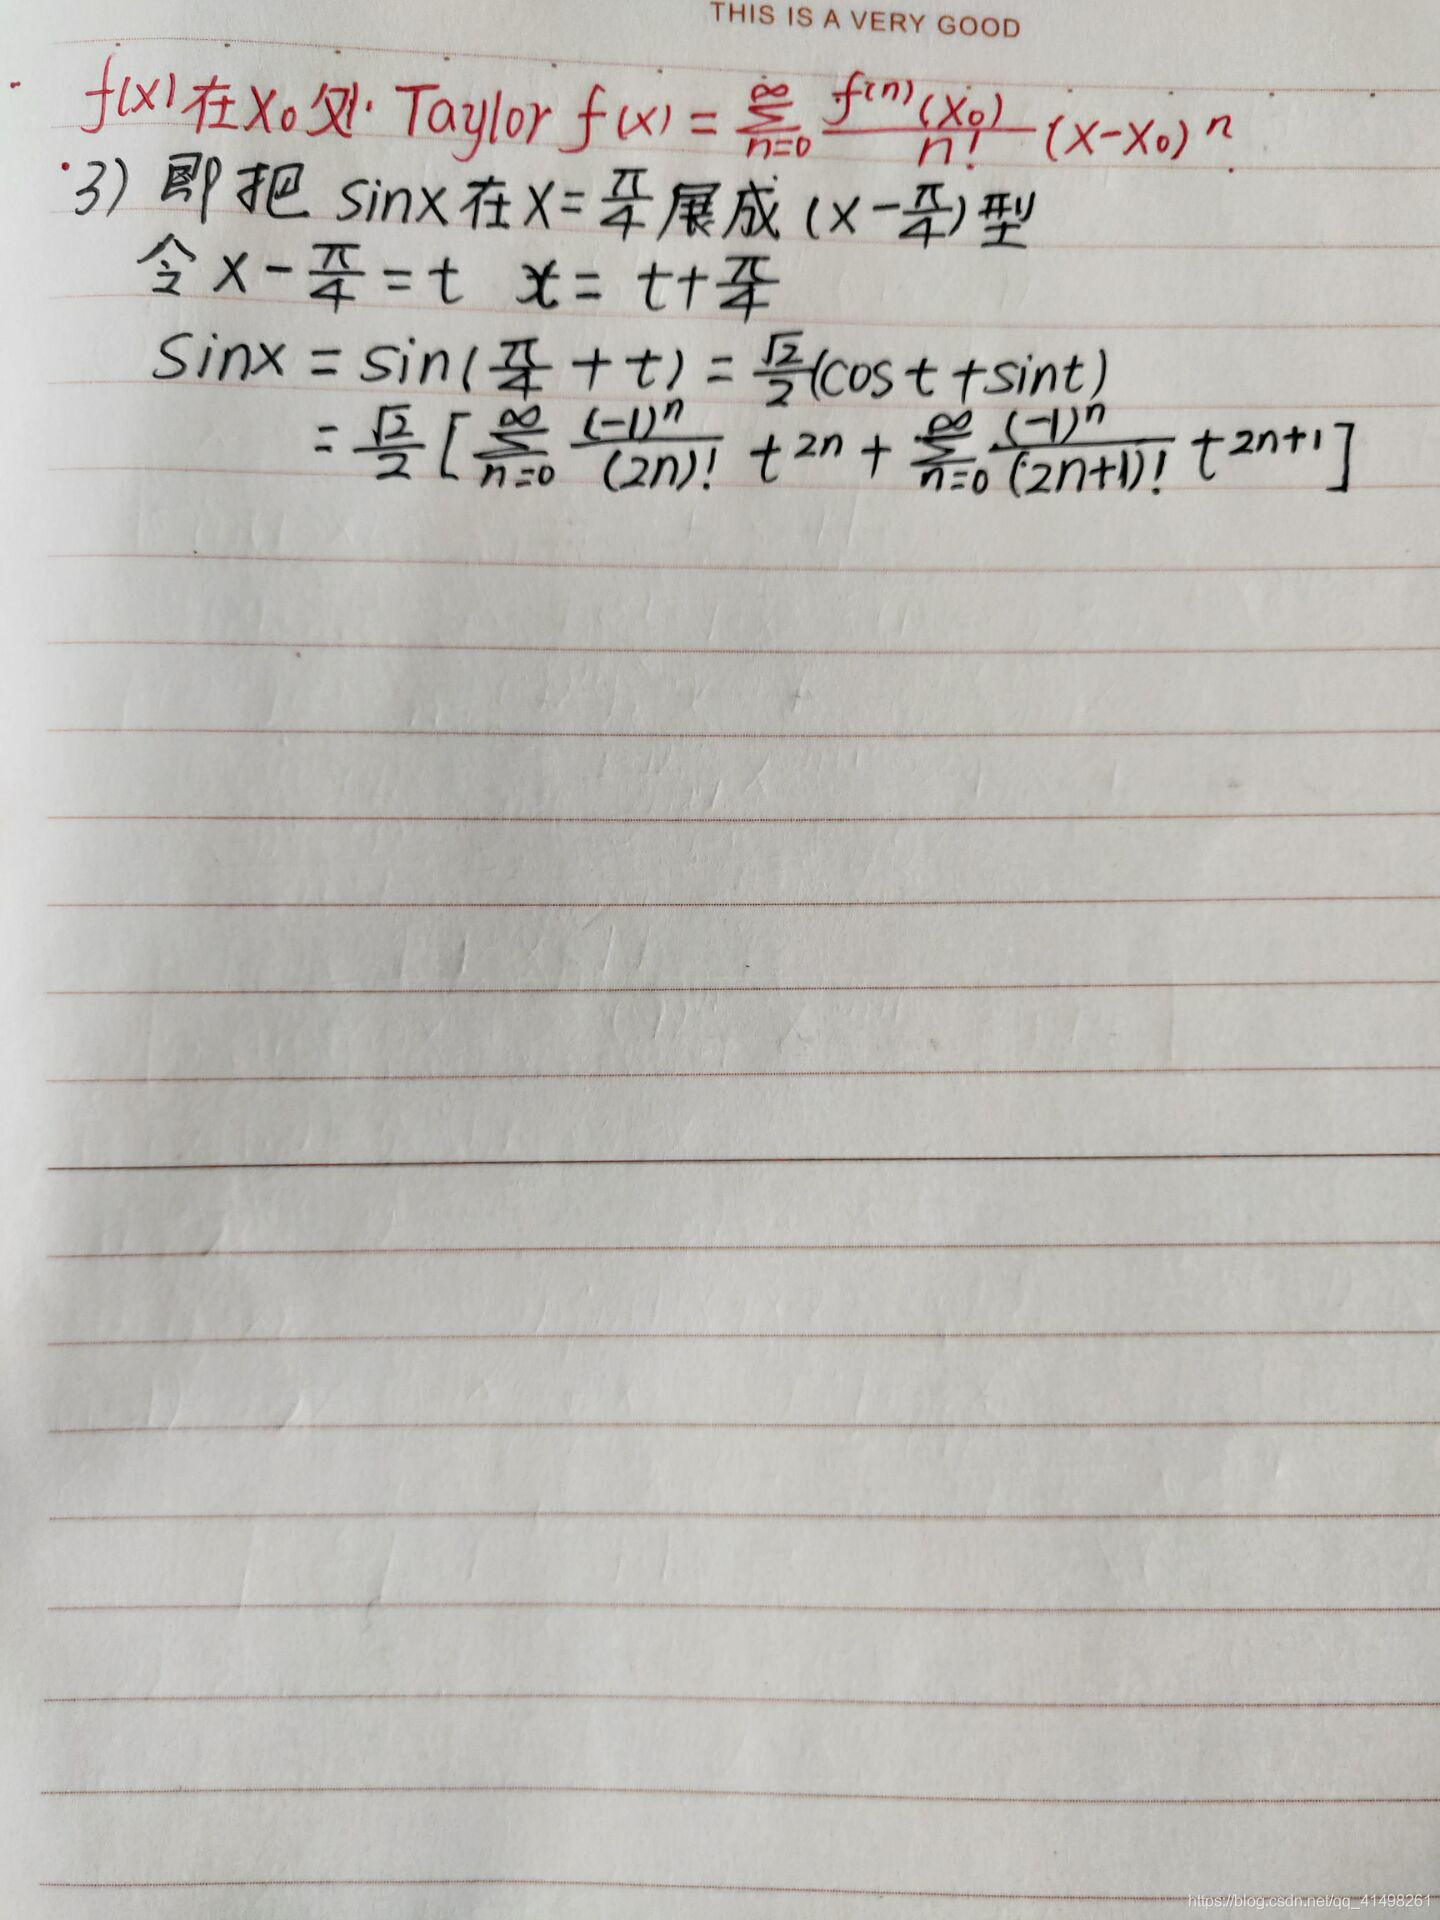 THIS IS A VERY GOOD
f(x)在x₀处. Taylor f(x) = \sum_{n=0}^{∞} \frac{f^{(n)}(x₀)}{n!} (x-x₀)^n
3) 即把 sinx在x=\frac{π}{4}展成(x-\frac{π}{4})型
令 x-\frac{π}{4}=t x= t+\frac{π}{4}
sinx = sin(\frac{π}{4}+t) = \frac{√2}{2}(cost+sint)
= \frac{√2}{2}[\sum_{n=0}^{∞} \frac{(-1)^n}{(2n)!} t^{2n} + \sum_{n=0}^{∞} \frac{(-1)^n}{(2n+1)!} t^{2n+1}]
https://blog.csdn.net/qq_41498261